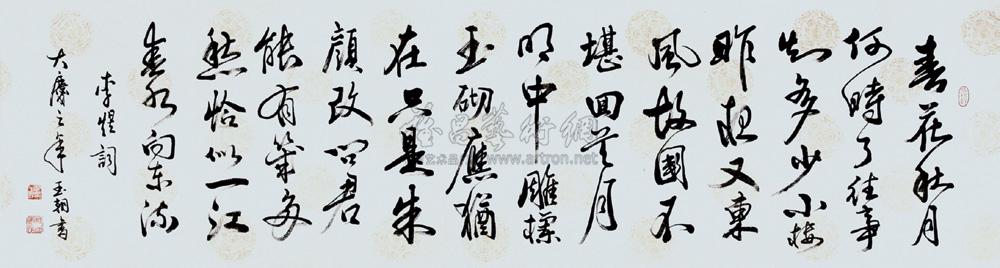 春花秋月
何時了往事
知多少小樓
昨夜又東
風故國不
堪回首月
明中雕欄
玉砌應猶
在只是朱
顏改問君
能有幾多
愁恰似一江
春水向东流
李煜詞
大慶之年 書
雅昌藝術網
www.artron.net